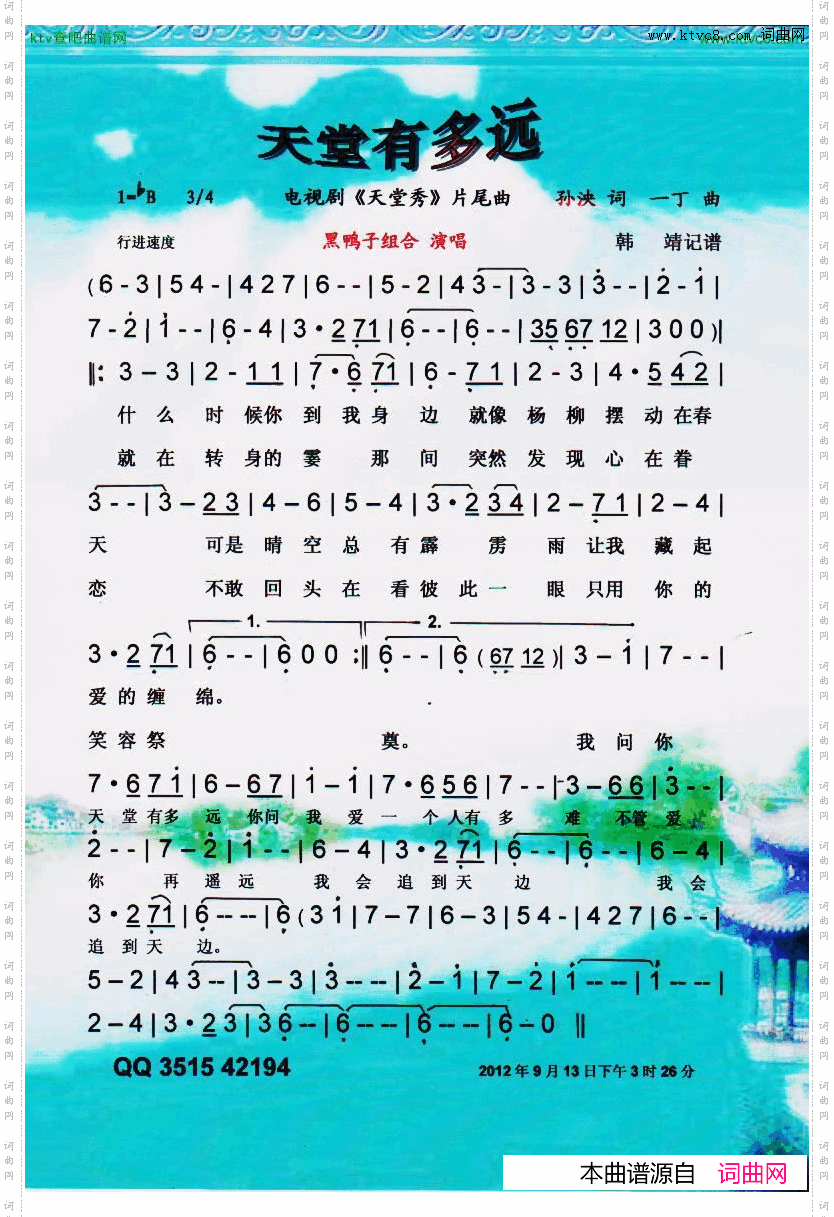 ktv查吧曲谱网
www.ktvc8.com 词曲网
天堂有多远
1=♭B 3/4 电视剧《天堂秀》片尾曲 孙泱 词 一丁 曲
行进速度 黑鸭子组合 演唱 韩 靖记谱
(6 - 3 | 5 4 - | 4 2 7 | 6 - - | 5 - 2 | 4 3 - | 3 - 3 | 3 - - | 2 - 1 |
7 - 2 | 1 - - | 6 - 4 | 3 · 2 7 1 | 6 - - | 6 - - | 3 5 6 7 1 2 | 3 0 0 )|
‖: 3 - 3 | 2 - 1 1 | 7 · 6 7 1 | 6 - 7 1 | 2 - 3 | 4 · 5 4 2 |
什 么 时 候你 到 我 身 边 就像 杨 柳 摆 动 在春
就 在 转 身的 霎 那 间 突然 发 现 心 在 眷
3 - - | 3 - 2 3 | 4 - 6 | 5 - 4 | 3 · 2 3 4 | 2 - 7 1 | 2 - 4 |
天 可是 晴 空 总 有 霹 雳 雨 让我 藏 起
恋 不敢 回 头 在 看 彼 此 一 眼 只用 你 的
1. 2.
3 · 2 7 1 | 6 - - | 6 0 0 :‖ 6 - - | 6 ( 6 7 1 2 )| 3 - 1 | 7 - - |
爱 的 缠 绵。
笑 容 祭 奠。 我 问 你
7 · 6 7 1 | 6 - 6 7 | 1 - 1 | 7 · 6 5 6 | 7 - - | 3 - 6 6 | 3 - - |
天 堂 有多 远 你问 我 爱 一 个 人有 多 难 不管 爱
2 - - | 7 - 2 | 1 - - | 6 - 4 | 3 · 2 7 1 | 6 - - | 6 - - | 6 - 4 |
你 再 遥 远 我 会 追 到 天 边 我 会
3 · 2 7 1 | 6 - - | 6 ( 3 1 | 7 - 7 | 6 - 3 | 5 4 - | 4 2 7 | 6 - - |
追 到 天 边。
5 - 2 | 4 3 - - | 3 - 3 | 3 - - | 2 - 1 | 7 - 2 | 1 - - | 1 - - |
2 - 4 | 3 · 2 3 | 3 6 - - | 6 - - | 6 - - | 6 - 0 ‖
QQ 3515 42194 2012年9月13日下午3时26分
本曲谱源自 词曲网